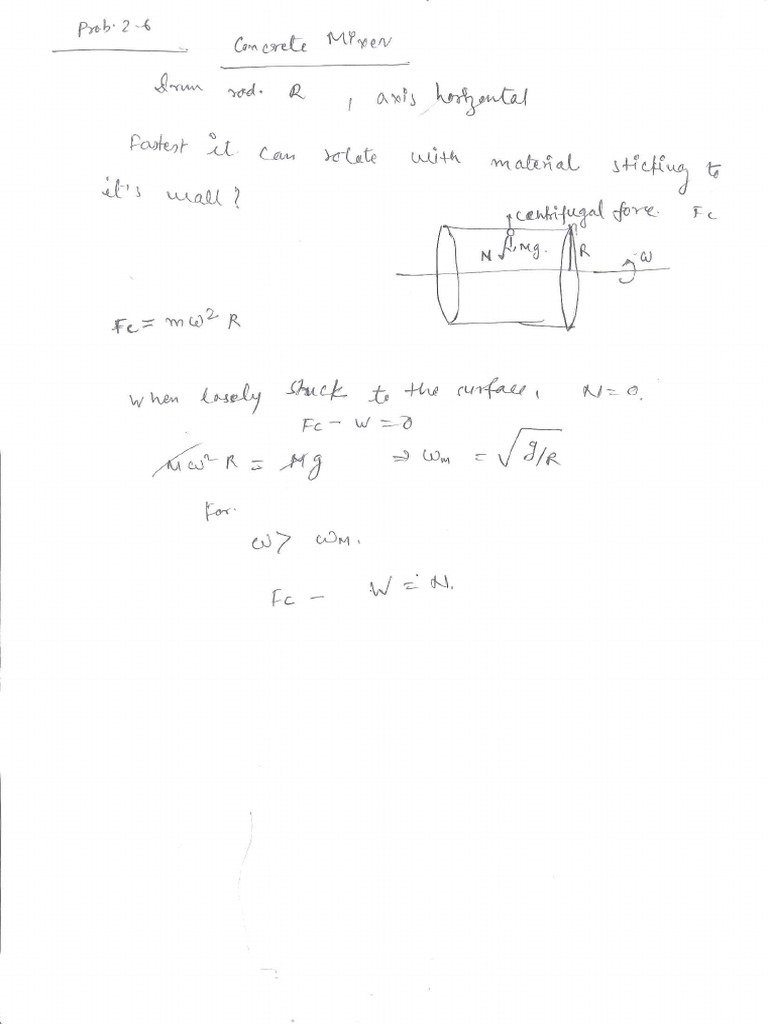 Prob. 2-6
Concrete Mixer
Drum rad. R , axis horizontal
Fastest it can rotate with material sticking to
it's wall?
centrifugal force. Fc
N Mg. R ω
Fc = mω² R
When losely stuck to the surface, N = 0.
Fc - W = 0
Mω² R = Mg ⇒ ωm = √g/R
For.
ω > ωM.
Fc - W = N.